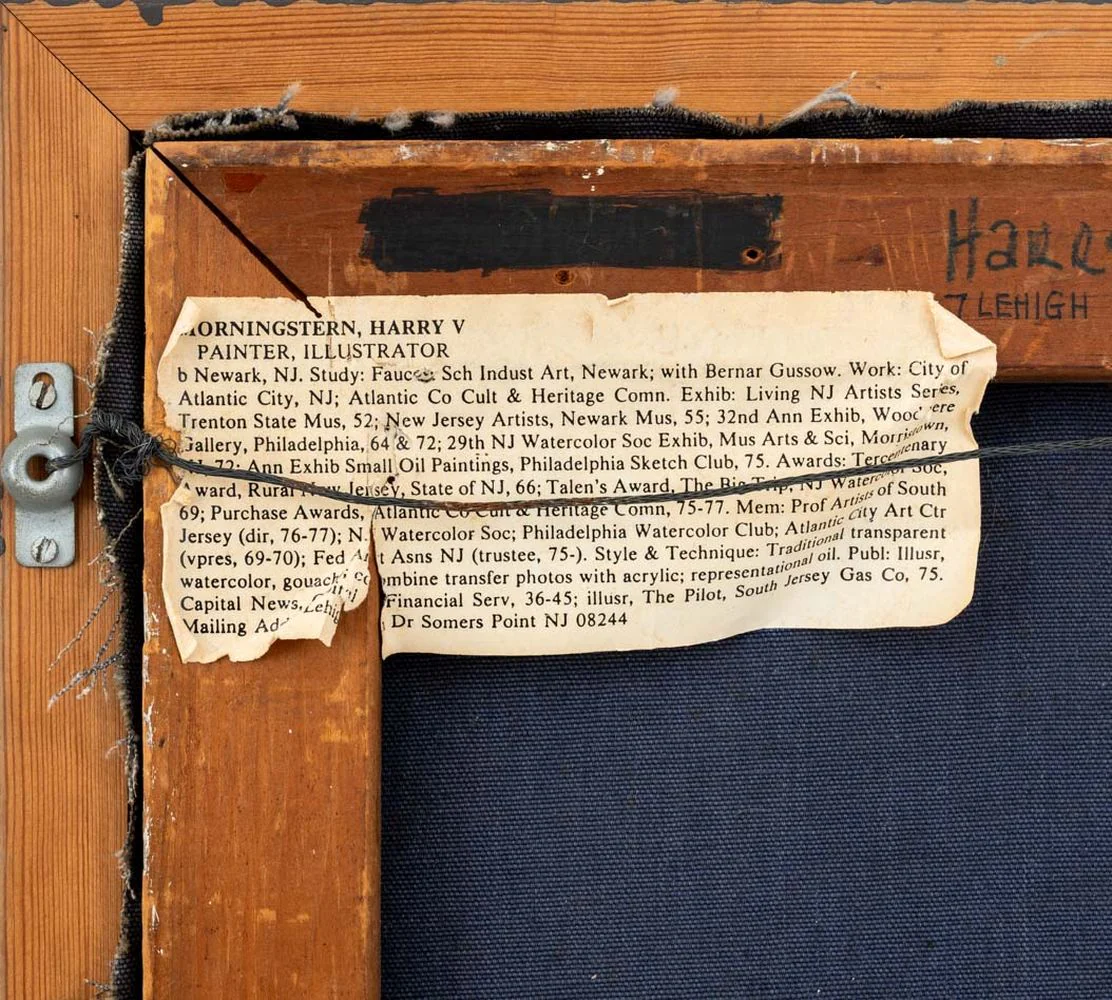 Harr
7 LEHIGH
MORNINGSTERN, HARRY V
PAINTER, ILLUSTRATOR
b Newark, NJ. Study: Fawcett Sch Indust Art, Newark; with Bernar Gussow. Work: City of
Atlantic City, NJ; Atlantic Co Cult & Heritage Comn. Exhib: Living NJ Artists Series,
Trenton State Mus, 52; New Jersey Artists, Newark Mus, 55; 32nd Ann Exhib, Woodmere
Gallery, Philadelphia, 64 & 72; 29th NJ Watercolor Soc Exhib, Mus Arts & Sci, Morristown,
NJ, 72; Ann Exhib Small Oil Paintings, Philadelphia Sketch Club, 75. Awards: Tercentenary
Award, Rural New Jersey, State of NJ, 66; Talen's Award, The Big Trip, NJ Watercolor Soc,
69; Purchase Awards, Atlantic Co Cult & Heritage Comn, 75-77. Mem: Prof Artists of South
Jersey (dir, 76-77); NJ Watercolor Soc; Philadelphia Watercolor Club; Atlantic City Art Ctr
(vpres, 69-70); Fed Art Asns NJ (trustee, 75-). Style & Technique: Traditional transparent
watercolor, gouache; combine transfer photos with acrylic; representational oil. Publ: Illusr,
Capital News, Financial Serv, 36-45; illusr, The Pilot, South Jersey Gas Co, 75.
Mailing Add: Lehigh Dr Somers Point NJ 08244